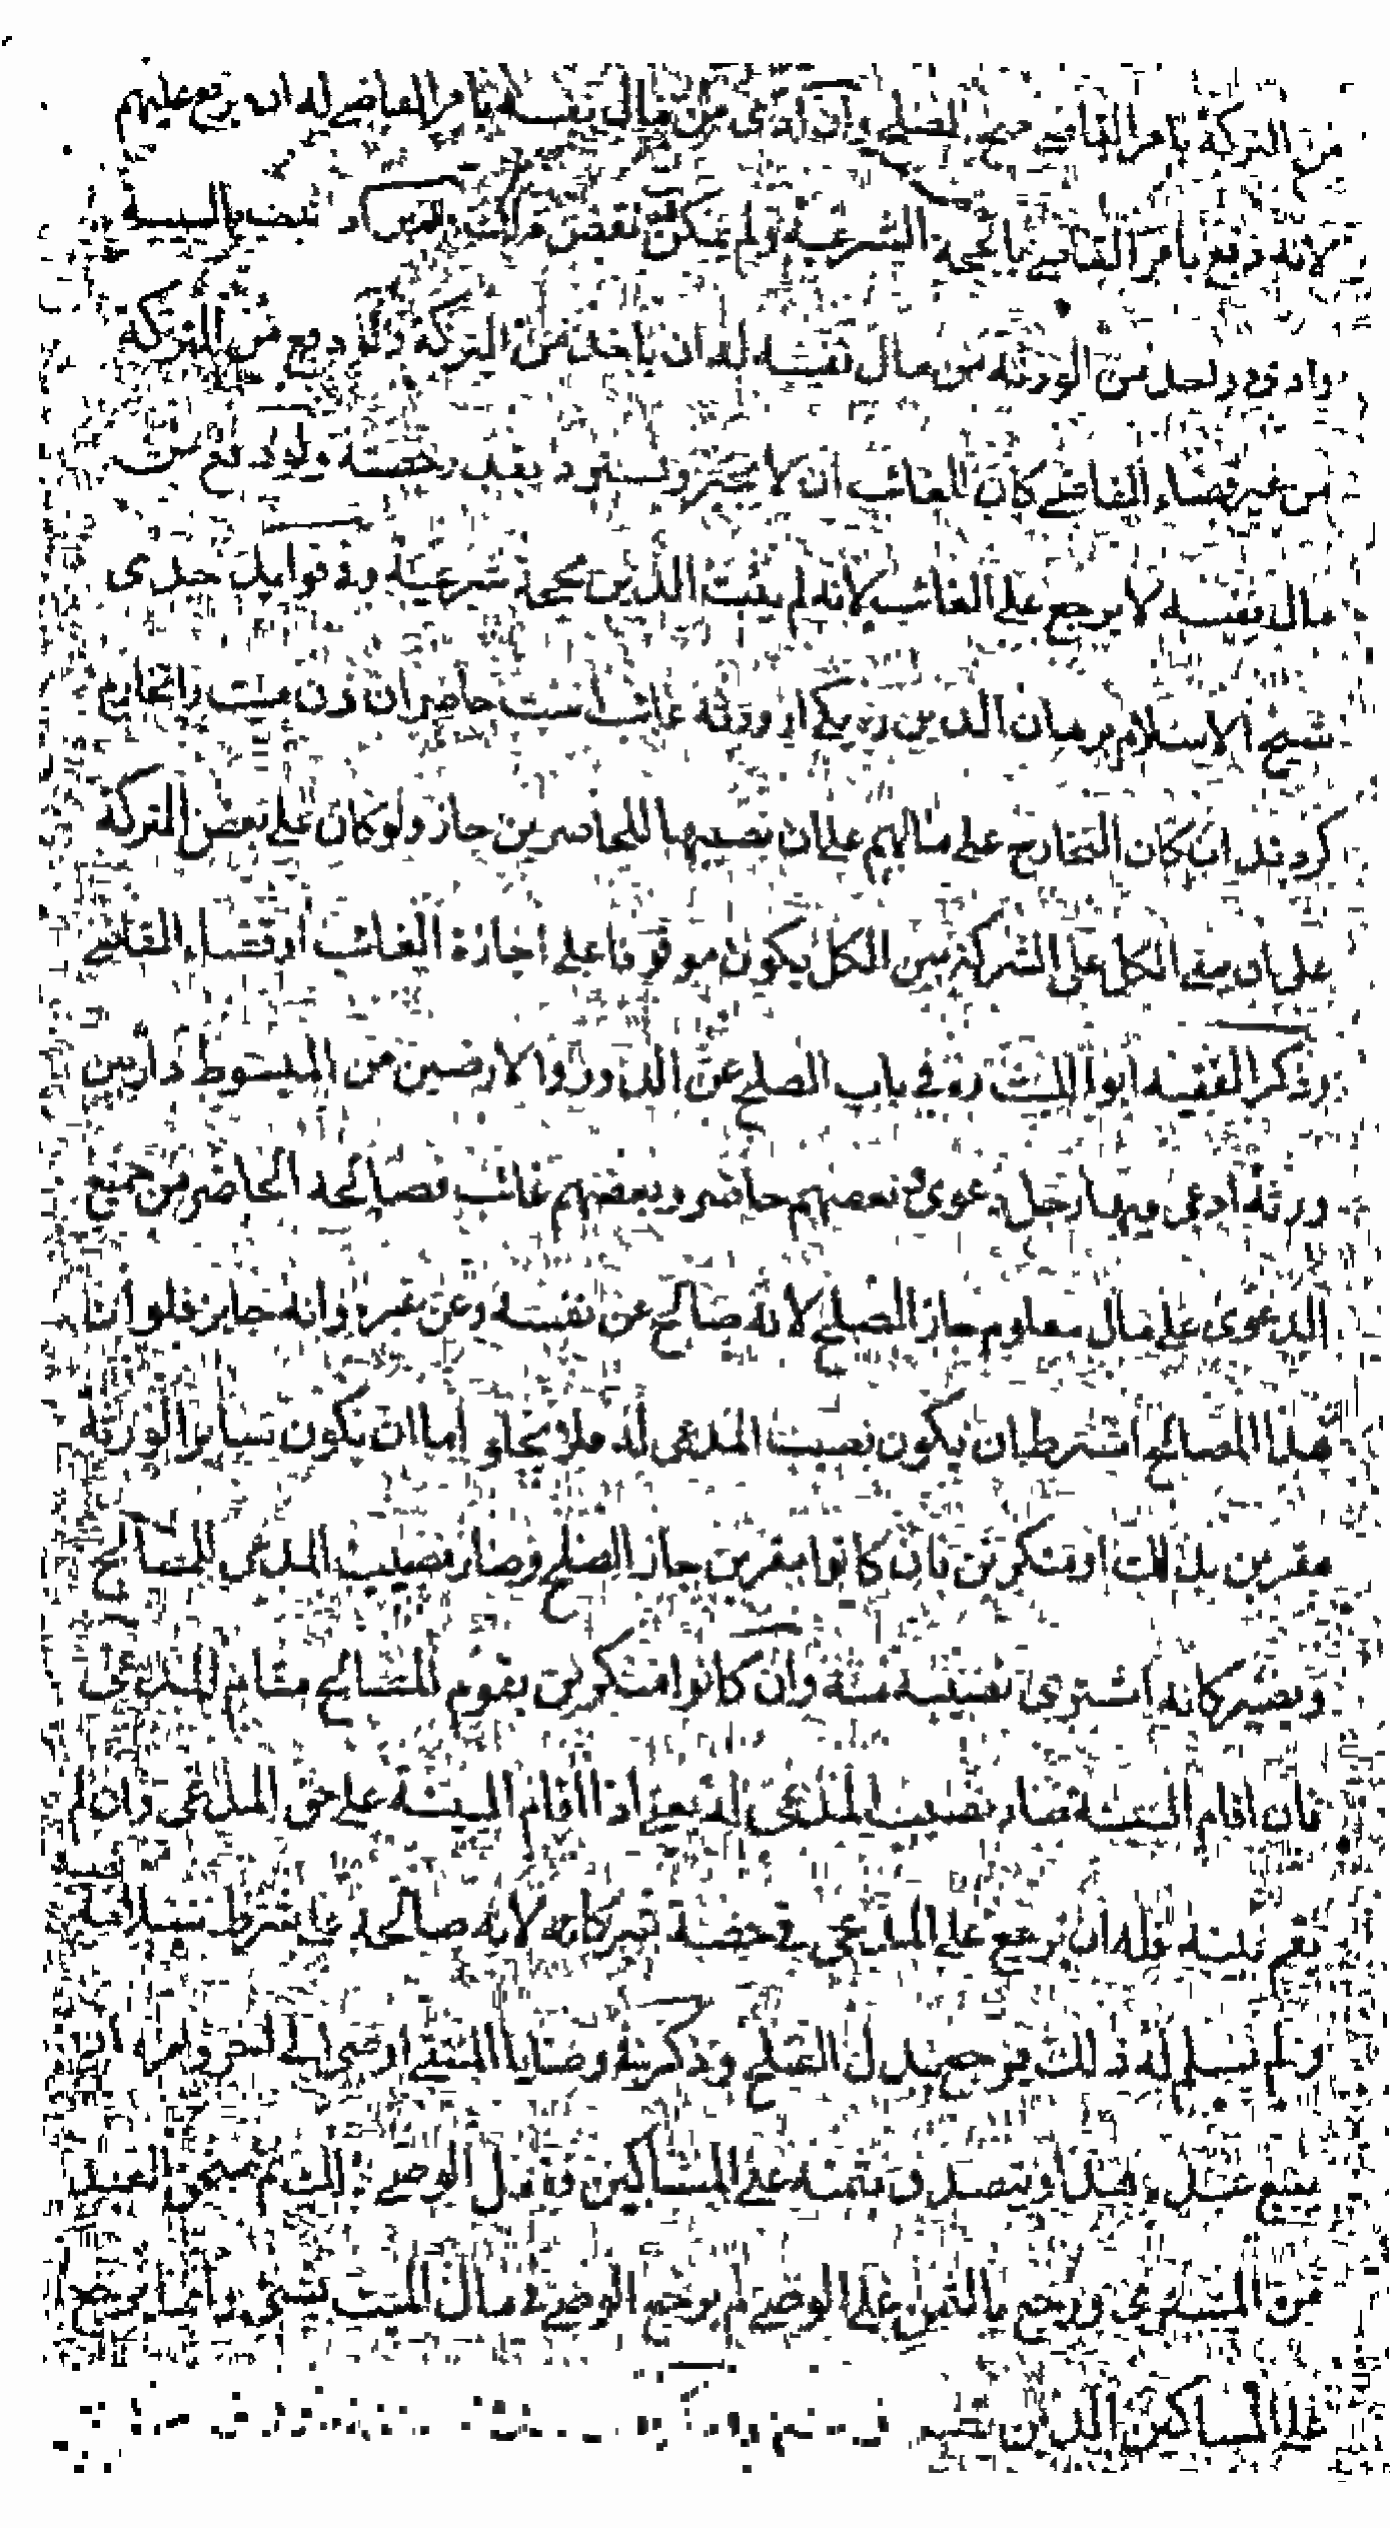 من التركة بامر القاضي صح الصلح وان ادى من مال نفسه بامر القاضي له ان يرجع عليهم
لانه دفع بامر القاضي بالحجة الشرعية ولم يمكن نقض بالبينة
وادى واحد من الورثة من مال نفسه له ان ياخذ من التركة ولو دفع من التركة
من غير قضاء القاضي كان للغائب ان لا يجيز ويسترد بقدر حصته ولو دفع من
مال نفسه لا يرجع على الغائب لانه لم يثبت الدين بحجة شرعية وفي فوائد جدي
شيخ الاسلام برهان الدين ره يكى از ورثه غائب است حاضران وزن ميت را تخارج
كردند ان كان التخارج على مالهم على ان نصيبها للحاضرين جاز ولو كان على بعض التركة
على ان يبقى الكل على الشركة بين الكل يكون موقوفا على اجازة الغائب او قضاء القاضي
وذكر الفقيه ابو الليث ره في باب الصلح عن الدور والارضين من المبسوط دار بين
ورثة ادعى فيها رجل دعوى وبعضهم حاضر وبعضهم غائب فصالحه الحاضر من جميع
الدعوى على مال معلوم جاز الصلح لانه صالح عن نفسه وعن غيره وانه جايز فلو ان
هذا المصالح اشترط ان يكون نصيب المدعي له فلا يخلو اما ان يكون سائر الورثة
مقرين بذلك او منكرين فان كانوا مقرين جاز الصلح وصار نصيب المدعي للمصالح
ويصير كانه اشترى نصيبه منه وان كانوا منكرين يقوم المصالح مقام المدعي
فان اقام البينة صار نصيب المدعي له يعني اذا اقام البينة على حق المدعي وان لم
يقم بينة فله ان يرجع على المدعي في حصة شركائه لانه صالحه على شرط سلامة
ولم يسلم له ذلك فيرجع ببدل الصلح وذكر في وصايا المنتقى اوصى الى اخر وامره ان
يبيع عبده هذا ويتصدق بثمنه على المساكين ففعل الوصي ذلك ثم استحق العبد
من المشتري ورجع بالثمن على الوصي لم يرجع الوصي في مال الميت بشيء وانما يرجع
على المساكين الذين